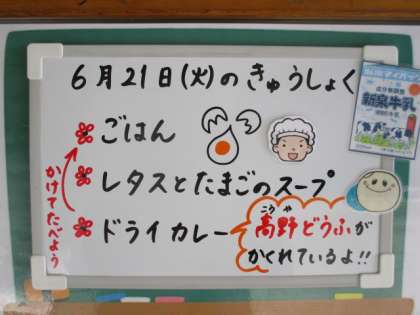 6月21日(火)のきゅうしょく
ごはん
レタスとたまごのスープ
ドライカレー
かけてたべよう
こうや
高野どうふが
かくれているよ!!
成分無調整
新泉牛乳